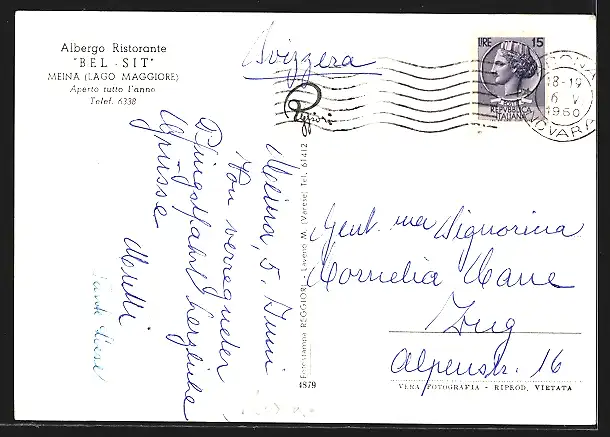 Albergo Ristorante
"BEL - SIT"
MEINA (LAGO MAGGIORE)
Aperto tutto l'anno
Telef. 6338
Svizzera
LIRE 15
REPVBBLICA
ITALIANA
18-19
6 V
1960
NOVARA
Meina, 5. Juni
Von verregneter
Pfingstfahrt herzliche
Grüsse
Gent. ma Signorina
Kornelia
Zug
Alpenstr. 16
Fotostampa REGGIORI - Laveno M. (Varese) Tel. 61412
4879
VERA FOTOGRAFIA - RIPROD. VIETATA